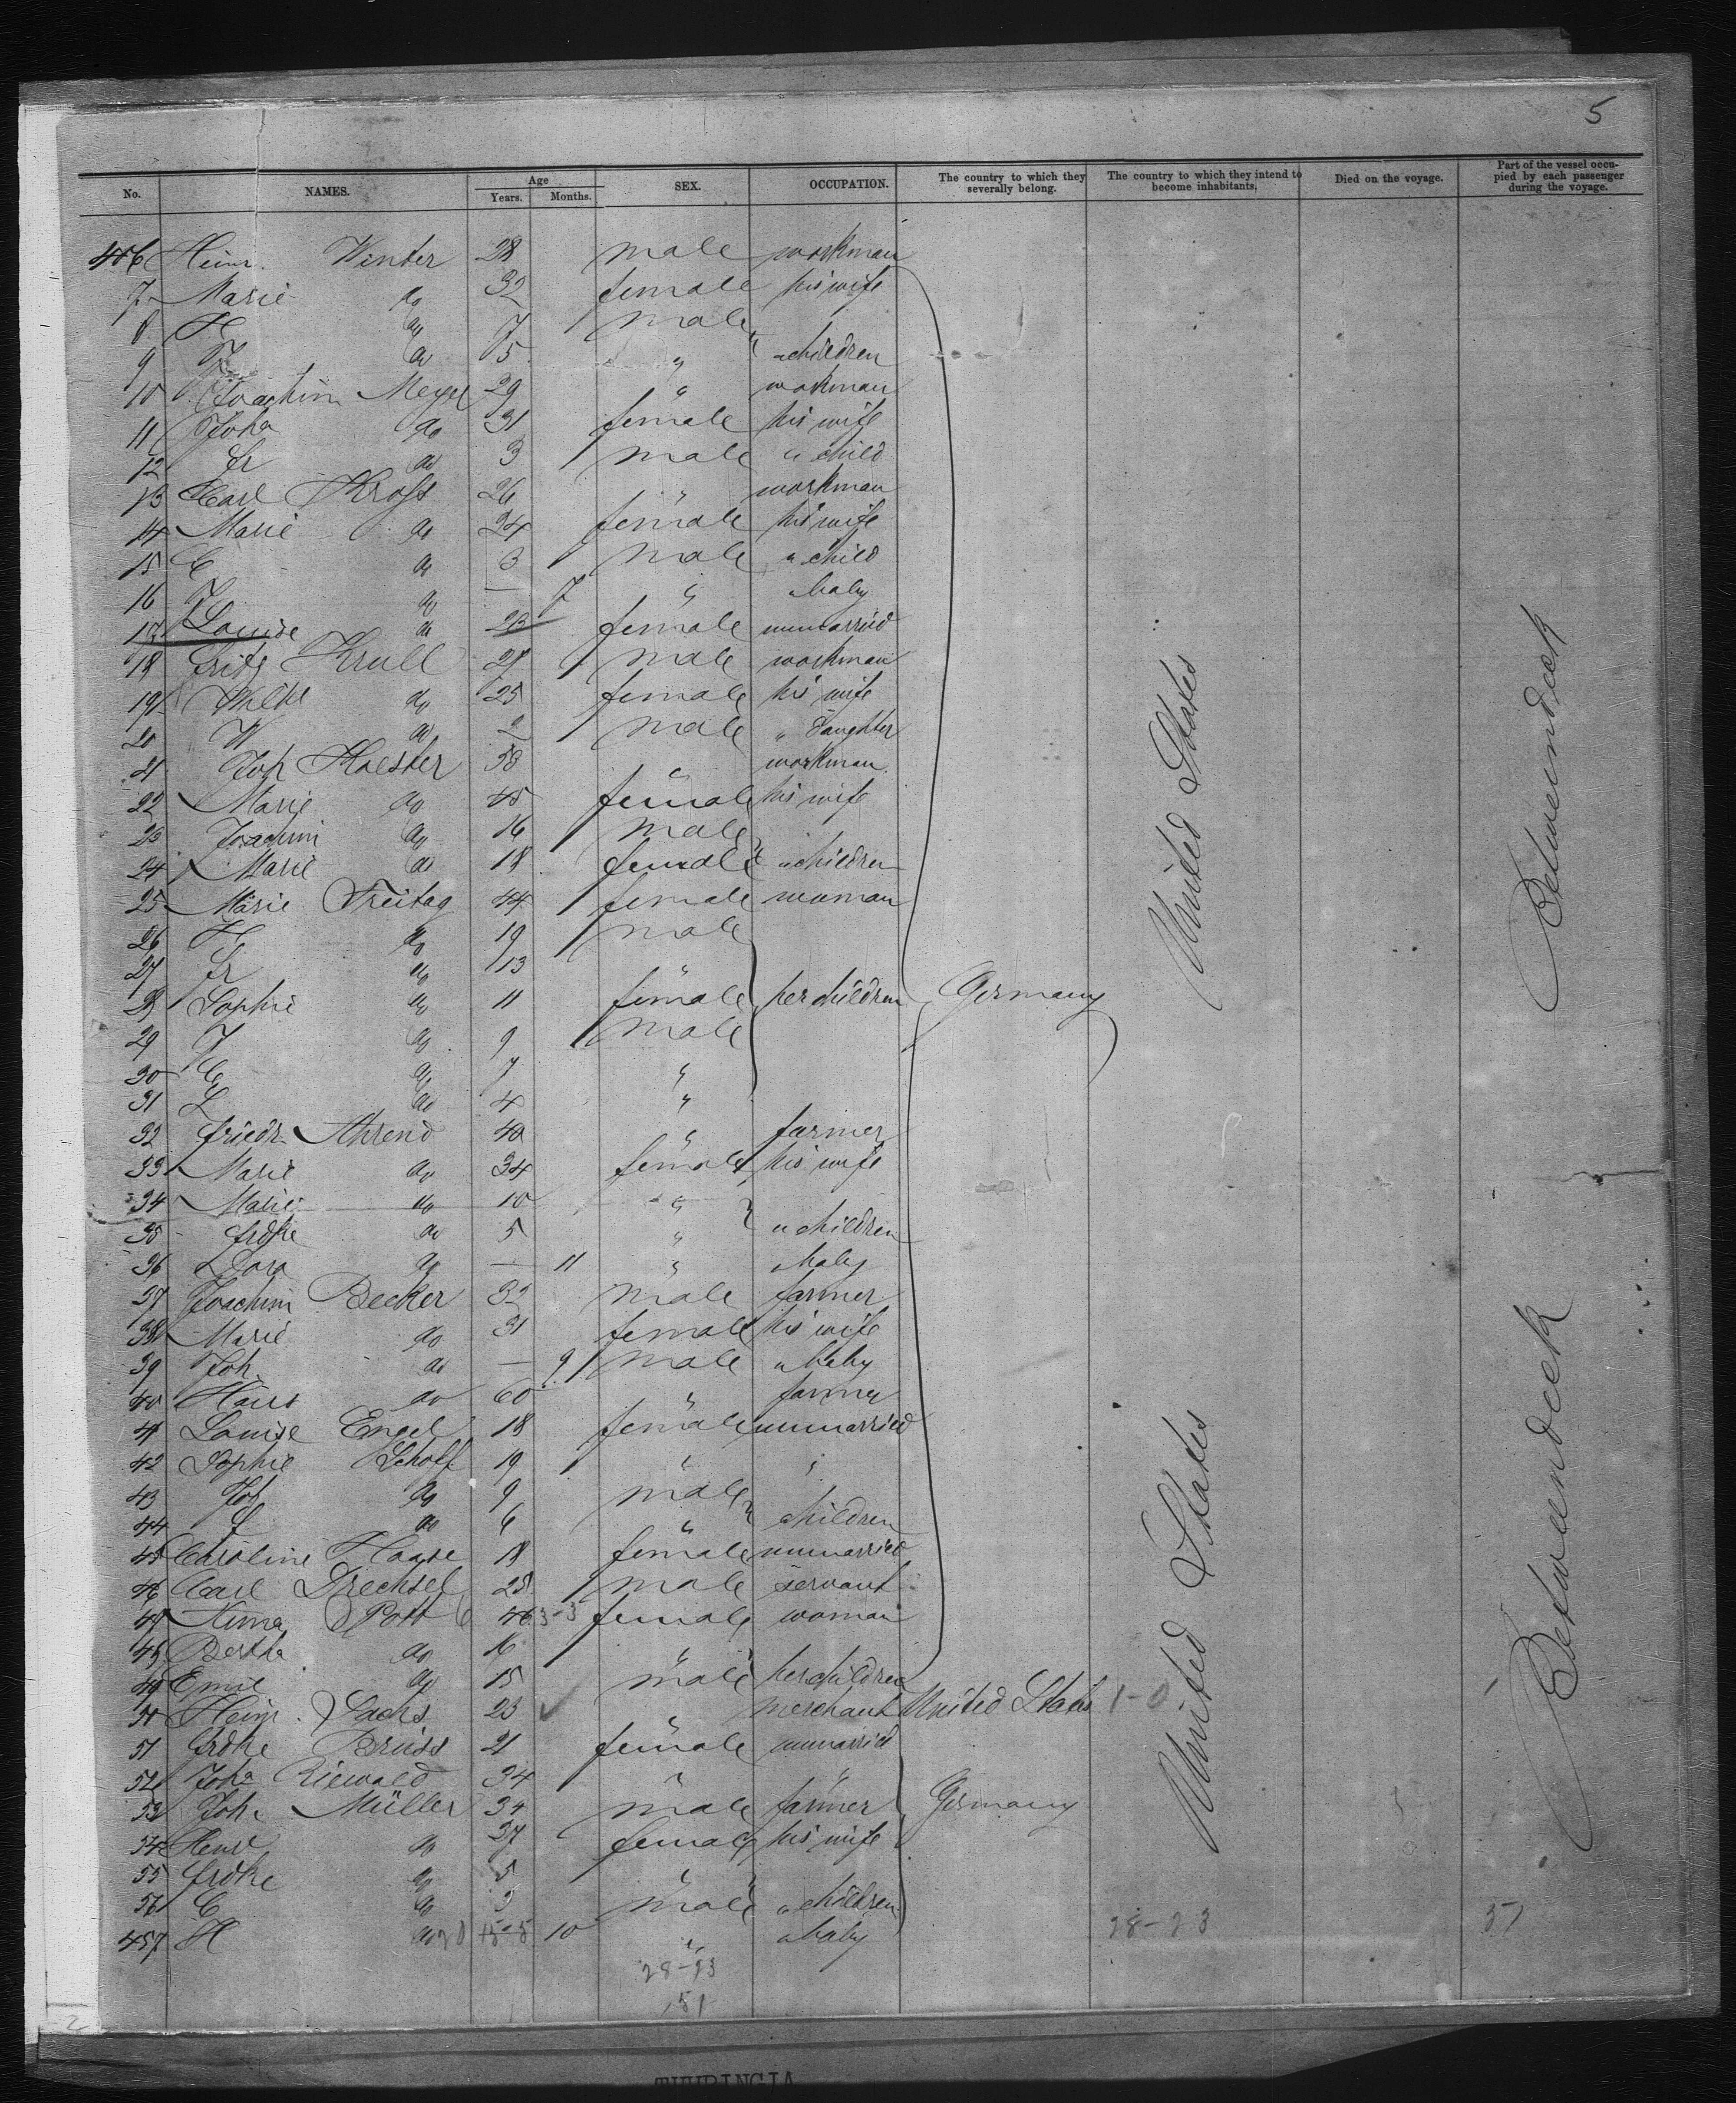 5
No. NAMES. Age Years. Months. SEX. OCCUPATION. The country to which they severally belong. The country to which they intend to become inhabitants. Died on the voyage. Part of the vessel occupied by each passenger during the voyage.
406 Heinr. Winter 28 male workman
7 Marie do 32 female his wife
8 H do 7 male
9 J do 5 " " children
10 Joachim Meyer 29 " workman
11 Joha do 31 female his wife
12 Fr do 3 male " child
13 Carl Kross 26 " workman
14 Marie do 24 female his wife
15 C do 3 male " child
16 J do — 7 " " baby
17 Louise do 23 female unmarried
18 Fritz Krull 27 male workman
19 Wilhe do 25 female his wife
20 W do 2 male " daughter
21 Joh Koester 50 " workman
22 Marie do 45 female his wife
23 Joachim do 16 male
24 Marie do 18 female " children
25 Marie Freitag 44 female woman
26 H do 19 male
27 Fr do 13 "
28 Sophie do 11 female her children Germany
29 J do 9 male
30 C do 7 "
31 L do 4 "
32 Friedr Ahrend 40 " farmer
33 Marie do 34 female his wife
34 Marie do 10 "
35 Frdke do 5 " " children
36 Dora do — 11 " " baby
37 Joachim Becker 32 male farmer
38 Marie do 31 female his wife
39 Joh. do — 9 male " baby
40 Hans do 60 " farmer
41 Louise Engel 18 female unmarried
42 Sophie Scholl 19 " "
43 Joh do 9 male
44 do 6 " children
45 Caroline Haase 18 female unmarried
46 Carl Drechsel 25 male servant
47 Pott 46 3-3 female woman
48 Bertha do 16 "
49 Emil do 15 male her children
50 Heinr. Sachs 23 " merchant United States 1-0
51 Frdke Brüss 21 female unmarried
52 Joha Riewald 34 " "
53 Joh. Müller 34 male farmer Germany
54 Henre do 27 female his wife
55 Frdke do 5 "
56 C do 3 male " children
457 H do 10 " " baby
28-23
United States
United States
Betweendeck
Betweendeck
28-23
51
57
2
THURINGIA